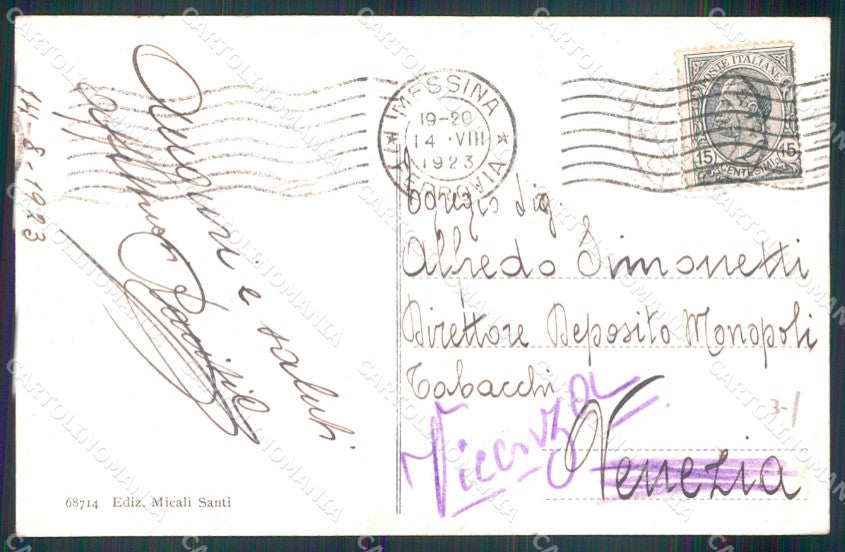 14-8-1923
Auguri e saluti
MESSINA
19-20
14 · VIII
1923
FERROVIA
POSTE ITALIANE
15 15
CENTESIMI
Egregio Sig.
Alfredo Simonetti
Direttore Deposito Monopoli
Tabacchi
Vicenza
Venezia
3-1
68714 Ediz. Micali Santi
CARTOLINOMANIA